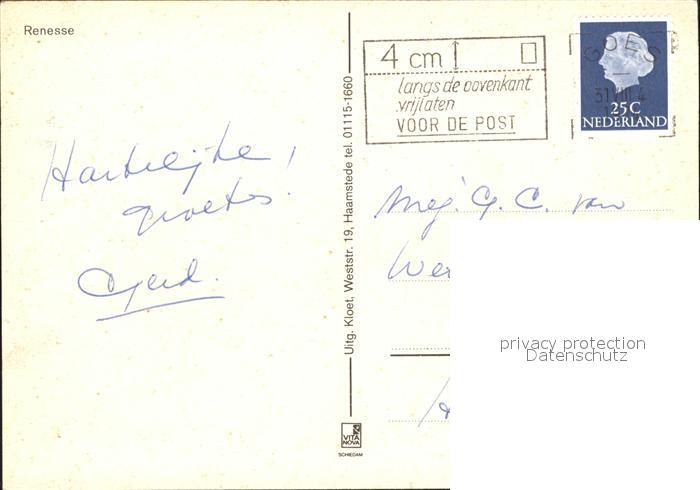 Renesse
4 cm
langs de bovenkant
vrijlaten
VOOR DE POST
GOES
31 VIII
25 C
NEDERLAND
Hartelijke
groeten
Uitg. Kloet, Weststr. 19, Haamstede tel. 01115-1660
Mej. G. C. van
privacy protection
Datenschutz
VITA
NOVA
SCHIEDAM